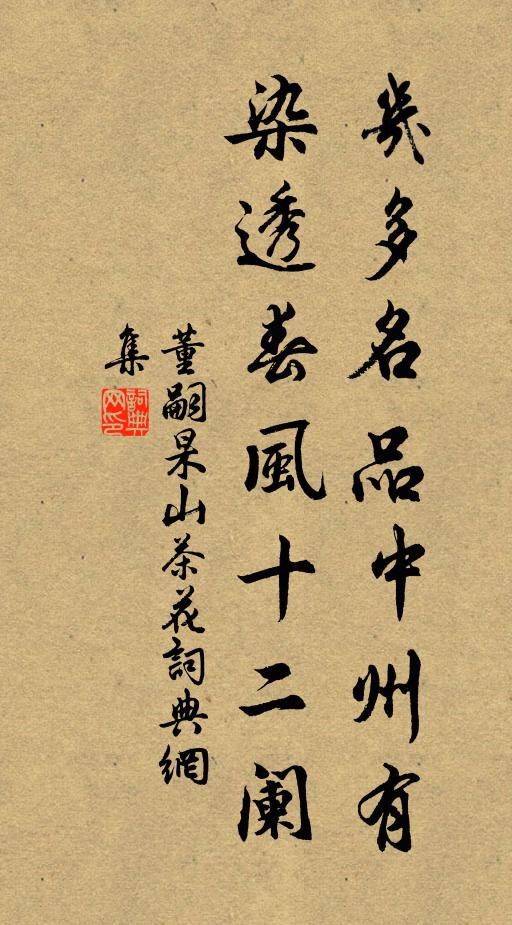 幾多名品中州有
染透春風十二阑
董嗣杲山茶花詞典網
集
詞典網印